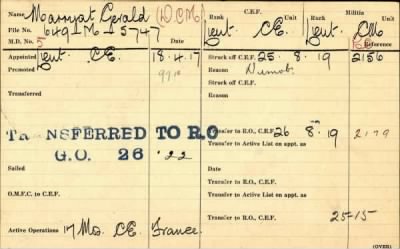 Name Marryat Gerald (D.C.M)
File No. 649-M-5747
M.D. No. 5 Date
C.E.F. Militia
Rank Unit Date Rank Unit Reference
Lieut. C.E. Lieut. CM
Appointed Lieut. C.E. 18.4.17
Struck off C.E.F. 25. 8. 19 2156
Promoted
Reason Demob.
Struck off C.E.F.
Reason
Transferred
TRANSFERRED TO R.O
G.O. 26 '22
Transfer to R.O., C.E.F. 26 8. 19 2179
Transfer to Active List on appt. as
Sailed
Date
O.M.F.C. to C.E.F.
Transfer to R.O., C.E.F.
Transfer to Active List on appt. as
Transfer to R.O., C.E.F.
25-15
Active Operations 17 Mos. C.E. France.
(OVER)